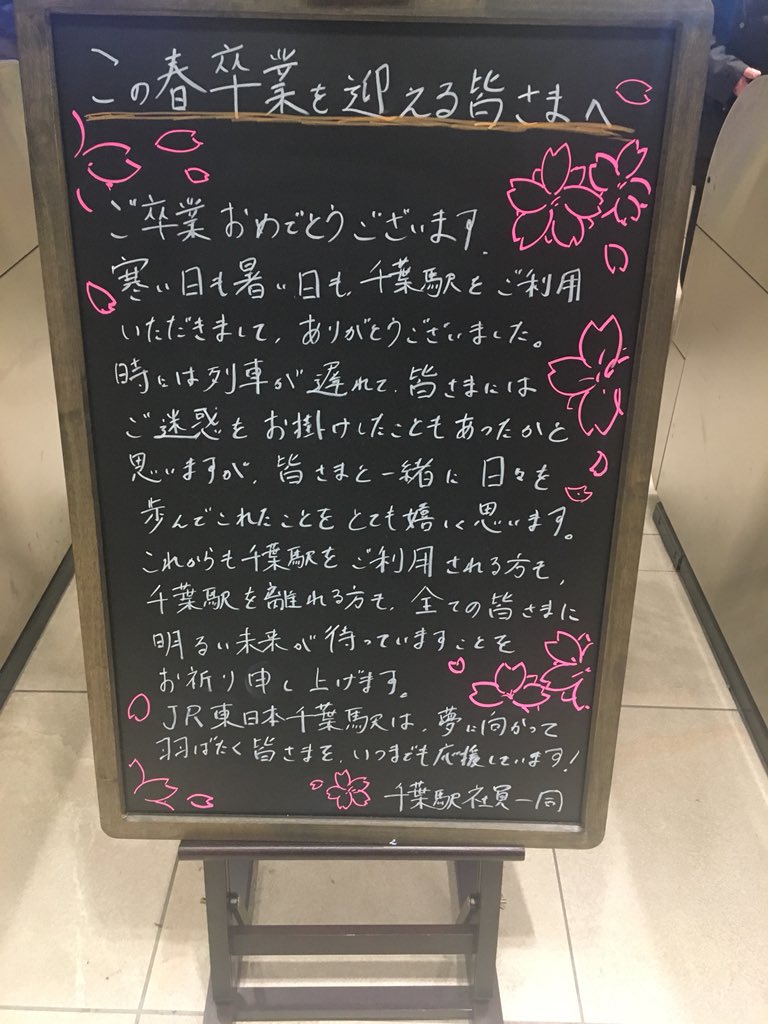 この春卒業を迎える皆さまへ
ご卒業おめでとうございます。
寒い日も暑い日も、千葉駅をご利用
いただきまして、ありがとうございました。
時には列車が遅れて、皆さまには
ご迷惑をお掛けしたこともあったかと
思いますが、皆さまと一緒に日々を
歩んでこれたことをとても嬉しく思います。
これからも千葉駅をご利用される方も、
千葉駅を離れる方も、全ての皆さまに
明るい未来が待っていますことを
お祈り申し上げます。
JR東日本千葉駅は、夢に向かって
羽ばたく皆さまを、いつまでも応援しています!
千葉駅社員一同